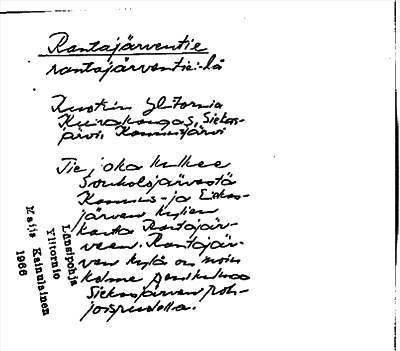 Rantajärventie
rantajärventie:-lä
Ylitornio
Kuivakangas, Siekas-
järvi, Kannusjärvi
Tie, joka kulkee
järvestä
Kannus- ja Siekas-
järven kylien
kautta Rantajär-
veen. Rantajär-
ven kylä on noin
kolme penikulmaa
Siekasjärven poh-
joispuolella.
Länsipohja
Ylitornio
Maija Kainulainen
1966